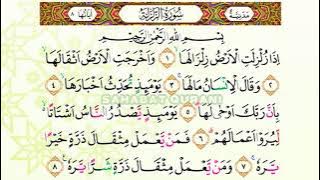 مدنية سورة الزلزلة آياتها ٨
بِسْمِ اللَّهِ الرَّحْمَٰنِ الرَّحِيمِ
إِذَا زُلْزِلَتِ الْأَرْضُ زِلْزَالَهَا ﴿١﴾ وَأَخْرَجَتِ الْأَرْضُ أَثْقَالَهَا
﴿٢﴾ وَقَالَ الْإِنْسَانُ مَا لَهَا ﴿٣﴾ يَوْمَئِذٍ تُحَدِّثُ أَخْبَارَهَا ﴿٤﴾
بِأَنَّ رَبَّكَ أَوْحَىٰ لَهَا ﴿٥﴾ يَوْمَئِذٍ يَصْدُرُ النَّاسُ أَشْتَاتًا
لِيُرَوْا أَعْمَالَهُمْ ﴿٦﴾ فَمَنْ يَعْمَلْ مِثْقَالَ ذَرَّةٍ خَيْرًا
يَرَهُ ﴿٧﴾ وَمَنْ يَعْمَلْ مِثْقَالَ ذَرَّةٍ شَرًّا يَرَهُ ﴿٨﴾